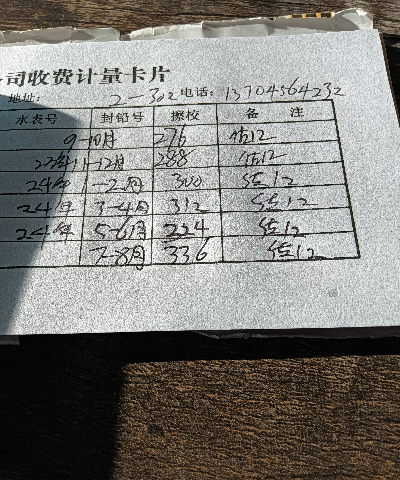 司收费计量卡片
地址: 2-302 电话: 13704564232
水表号 封铅号 擦校 备 注
9-10月 276 估12
23年11-12月 288 估12
24年 1-2月 300 估12
24年 3-4月 312 估12
24年 5-6月 224 估12
7-8月 336 估12